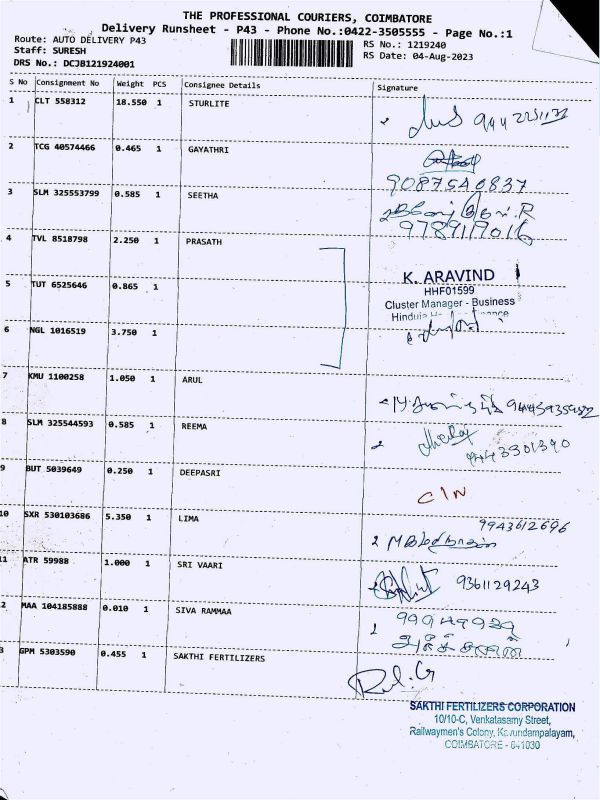 THE PROFESSIONAL COURIERS, COIMBATORE
Delivery Runsheet - P43 - Phone No.:0422-3505555 - Page No.:1
Route: AUTO DELIVERY P43
Staff: SURESH
DRS No.: DCJB121924001
RS No.: 1219240
RS Date: 04-Aug-2023
S No Consignment No Weight PCS Consignee Details Signature
1 CLT 558312 18.550 1 STURLITE
2 TCG 40574466 0.465 1 GAYATHRI
9087540837
3 SLM 325553799 0.585 1 SEETHA
9789119016
4 TVL 8518798 2.250 1 PRASATH
K. ARAVIND
HHF01599
Cluster Manager - Business
5 TUT 6525646 0.865 1
6 NGL 1016519 3.750 1
7 KMU 1100258 1.050 1 ARUL
8 SLM 325544593 0.585 1 REEMA
9443301390
9 BUT 5039649 0.250 1 DEEPASRI
C/N
10 SXR 530103686 5.350 1 LIMA
9943612696
11 ATR 59988 1.000 1 SRI VAARI
9361129243
2 MAA 104185888 0.010 1 SIVA RAMMAA
3 GPM 5303590 0.455 1 SAKTHI FERTILIZERS
SAKTHI FERTILIZERS CORPORATION
10/10-C, Venkatasamy Street,
Railwaymen's Colony, Kavundampalayam,
COIMBATORE - 641030